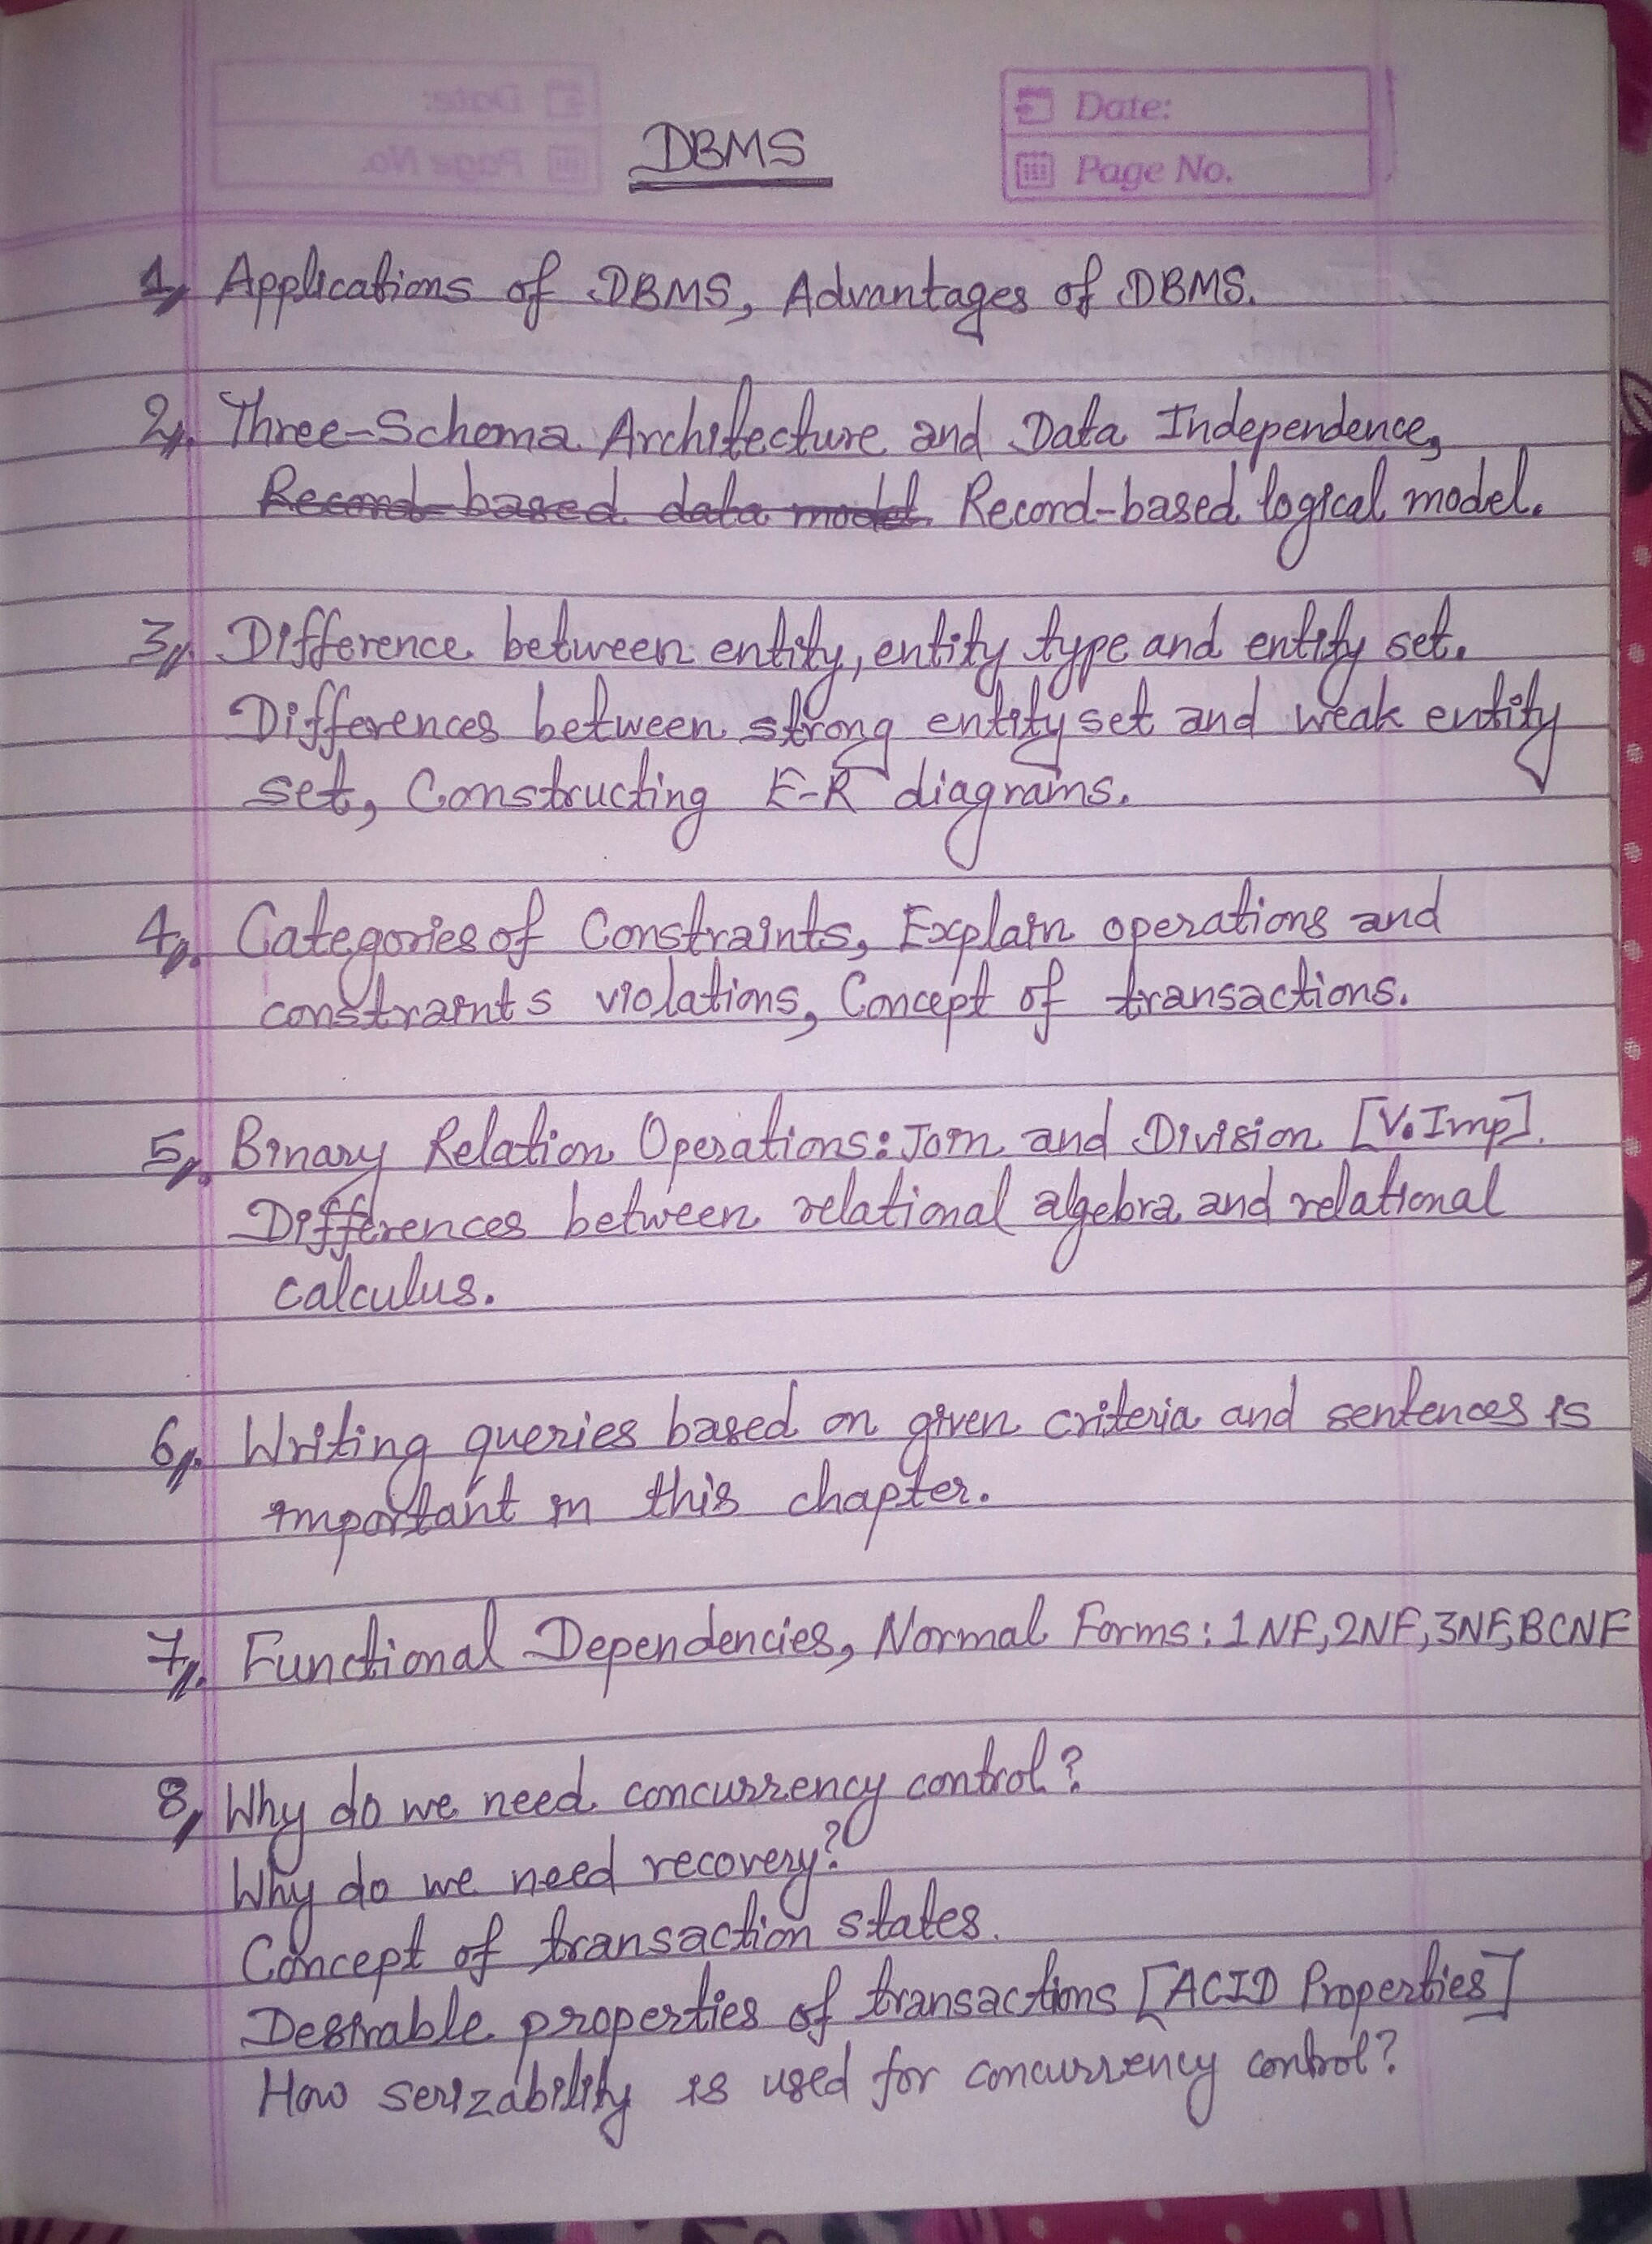 Date:
Page No.
DBMS
1, Applications of DBMS, Advantages of DBMS.
2, Three-Schema Architecture and Data Independence,
Record-based data model Record-based logical model.
3, Difference between entity, entity type and entity set.
Differences between strong entity set and weak entity
set, Constructing E-R diagrams.
4, Categories of Constraints, Explain operations and
constraints violations, Concept of transactions.
5, Binary Relation Operations: Join and Division [V.Imp].
Differences between relational algebra and relational
calculus.
6, Writing queries based on given criteria and sentences is
important in this chapter.
7, Functional Dependencies, Normal Forms: 1NF, 2NF, 3NF, BCNF
8, Why do we need concurrency control?
Why do we need recovery?
Concept of transaction states.
Desirable properties of transactions [ACID Properties]
How serizability is used for concurrency control?